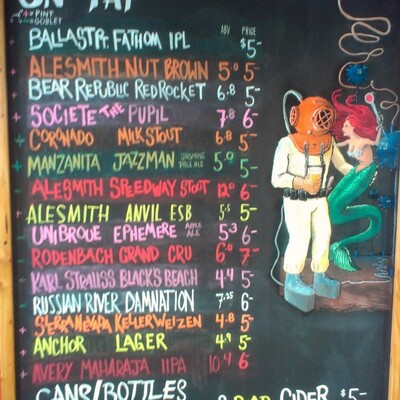 ON TAP
+ = PINT
- = GOBLET
ABV PRICE
BALLAST PT. FATHOM IPL $5-
ALESMITH NUT BROWN 5.0 5-
+ BEAR REPUBLIC RED ROCKET 6.8 5-
+ SOCIETE THE PUPIL 7.8 6-
+ CORONADO MILK STOUT 6.8 5-
+ MANZANITA JAZZMAN JASMINE PALE ALE 5.0 5-
- ALESMITH SPEEDWAY STOUT 12.0 6-
+ ALESMITH ANVIL ESB 5.5 5-
UNIBROUE EPHEMERE APPLE ALE 5.3 6-
- RODENBACH GRAND CRU 6.0 7-
- KARL STRAUSS BLACK'S BEACH 4.4 5-
- RUSSIAN RIVER DAMNATION 7.25 6-
+ SIERRA NEVADA KELLERWEIZEN 4.8 5-
+ ANCHOR LAGER 4.9 5-
- AVERY MAHARAJA IIPA 10.4 6
CANS/BOTTLES
CIDER $5-